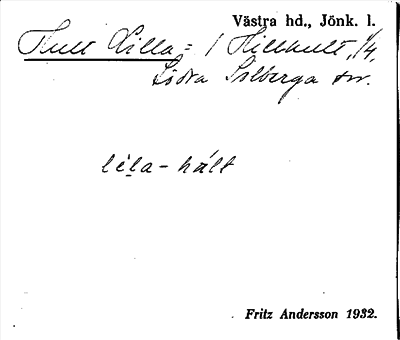 Västra hd., Jönk. l.
Hult Lilla = 1 Hillhult, 1/4,
Södra Solberga sn.
lela - hált
Fritz Andersson 1932.